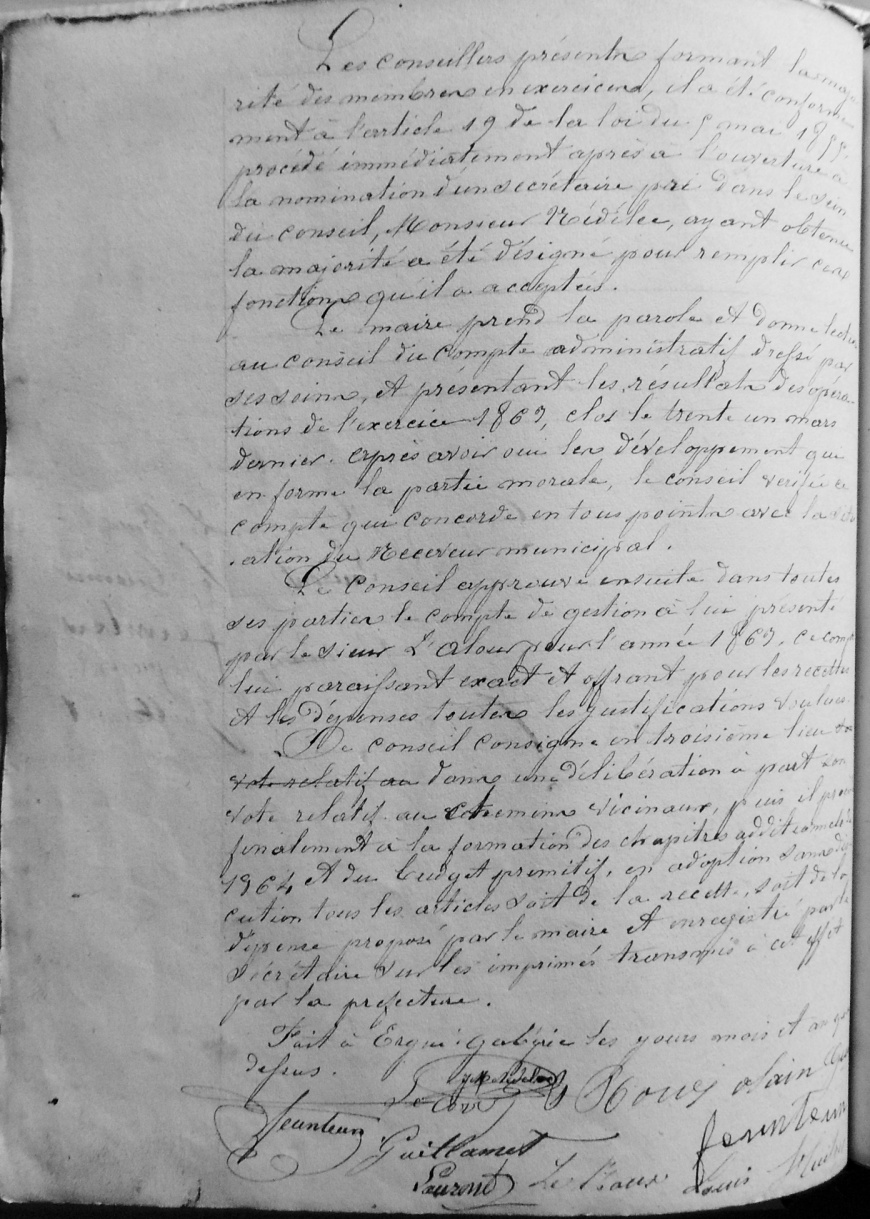 Les conseillers présents formant la majo
rité des membres en exercice, il a été conformé
ment à l'article 19 de la loi du 5 mai 1855,
procédé immédiatement après à l'ouverture à
la nomination d'un secrétaire pri dans le sein
du conseil, Monsieur Nédélec, ayant obtenu
la majorité a été désigné pour remplir ces
fonctions qu'il a acceptées.
Le maire prend la parole et donne lecture
au conseil du compte administratif dressé par
ses soins, et présentant les résultats des opéra
tions de l'exercice 1863, clos le trente un mars
dernier. Après avoir oui les développement qui
en forme la partie morale, le conseil vérifie ce
compte qui concorde en tous points avec la
du Receveur municipal.
Le Conseil approuve ensuite dans toutes
ses parties le compte de gestion à lui présenté
par le sieur Latour pour l'année 1863, ce compte
lui paraissant exact et offrant pour les recettes
et les dépenses toutes les justifications voulues.
Le conseil consigne en troisième lieu
vote relatif au dans une délibération à part son
vote relatif au chemins vicinaux, puis il
finalement à la formation des chapitres additionnels
1864 et du budget primitif, en adoption sans dis
cution tous les articles soit de la recette, soit de la
dépense proposé par le maire et enregistré par le
sécrétaire sur les imprimés transmis à cet effet
par la préfecture.
Fait à Ergué-Gabéric les jours mois et an que
dessus.
Nédélec
Le Rouz Alain
feunteun
Guillamet
feunteun
Laurent Le Roux Louis